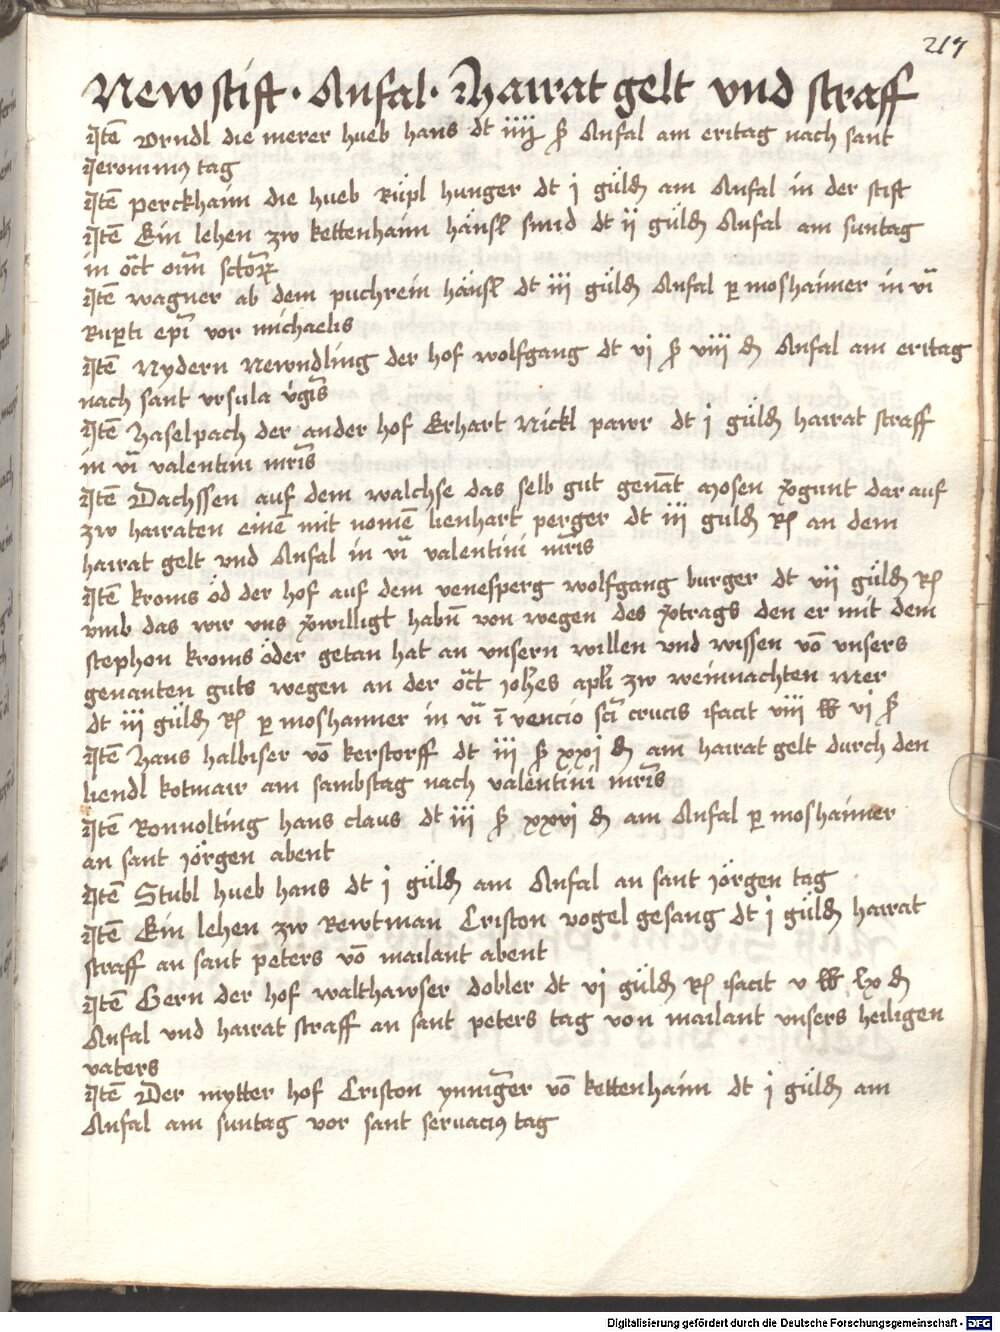 217
Newstift · Anfal · Hairat gelt vnd straff
Itē Orndl die merer hueb hans dt iiij ß Anfal am eritag nach sant
Jeronimꝰ tag
Itē perckhaim die hueb Rüpl hunger dt j güldn̄ am Anfal in der stift
Itē Ein lehen zw kettenhaim hänsl smid dt ij güldn̄ Anfal am suntag
in oct̄ oīm sctōrꝝ
Itē wagner ab dem puchrein hänsl dt iij güldn̄ Anfal ꝑ moshaimer in vī
Ruꝑti epī vor michaelis
Itē Nydern Newndling der hof wolfgang dt vj ß viij dn̄ Anfal am eritag
nach sant vrsula v̄gīs
Itē Haselpach der ander hof Erhart Nickl pawr dt j güldn̄ hairat straff
in vī valentini mr̄is
Itē Dachssen auf dem walchse das selb gut genāt mosen v̄gunt dar auf
zw hairaten einē mit nomē lienhart perger dt iij guldn̄ Rl an dem
hairat gelt vnd Anfal in vī valentini mr̄is
Itē kroms öd der hof auf dem venesperg wolfgang burger dt vij güldn̄ Rl
vmb das wir vns v̄willigt habn̄ von wegen des v̄trags den er mit dem
stephon kroms öder getan hat an vnsern willen vnd wissen vō vnsers
genanten guts wegen an der oct̄ joh̄es apl̄i zw weinnachten Mer
dt iij güldn̄ Rl ꝑ moshaimer in vī īvencio sctī crucis facit viij lb vj ß
Itē Hans halbiser vō kerstorff dt iij ß xxj dn̄ am hairat gelt durch den
liendl kotmair am sambstag nach valentini mr̄is
Itē Ronnolting hans claus dt iij ß xxvj dn̄ am Anfal ꝑ moshaimer
an sant jörgen abent
Itē Stubl hueb hans dt j güldn̄ am Anfal an sant jörgen tag
Itē Ein lehen zw Rewtman Criston vogel gesang dt j güldn̄ hairat
straff an sant peters vō mailant abent
Itē Gern der hof walthawser dobler dt vj güldn̄ Rl facit v lb lx dn̄
Anfal vnd hairat straff an sant peters tag von mailant vnsers heiligen
vaters
Itē Der mytter hof Criston ynniger vō kettenhaim dt j güldn̄ am
Anfal am suntag vor sant seruaciꝰ tag
Digitalisierung gefördert durch die Deutsche Forschungsgemeinschaft - DFG